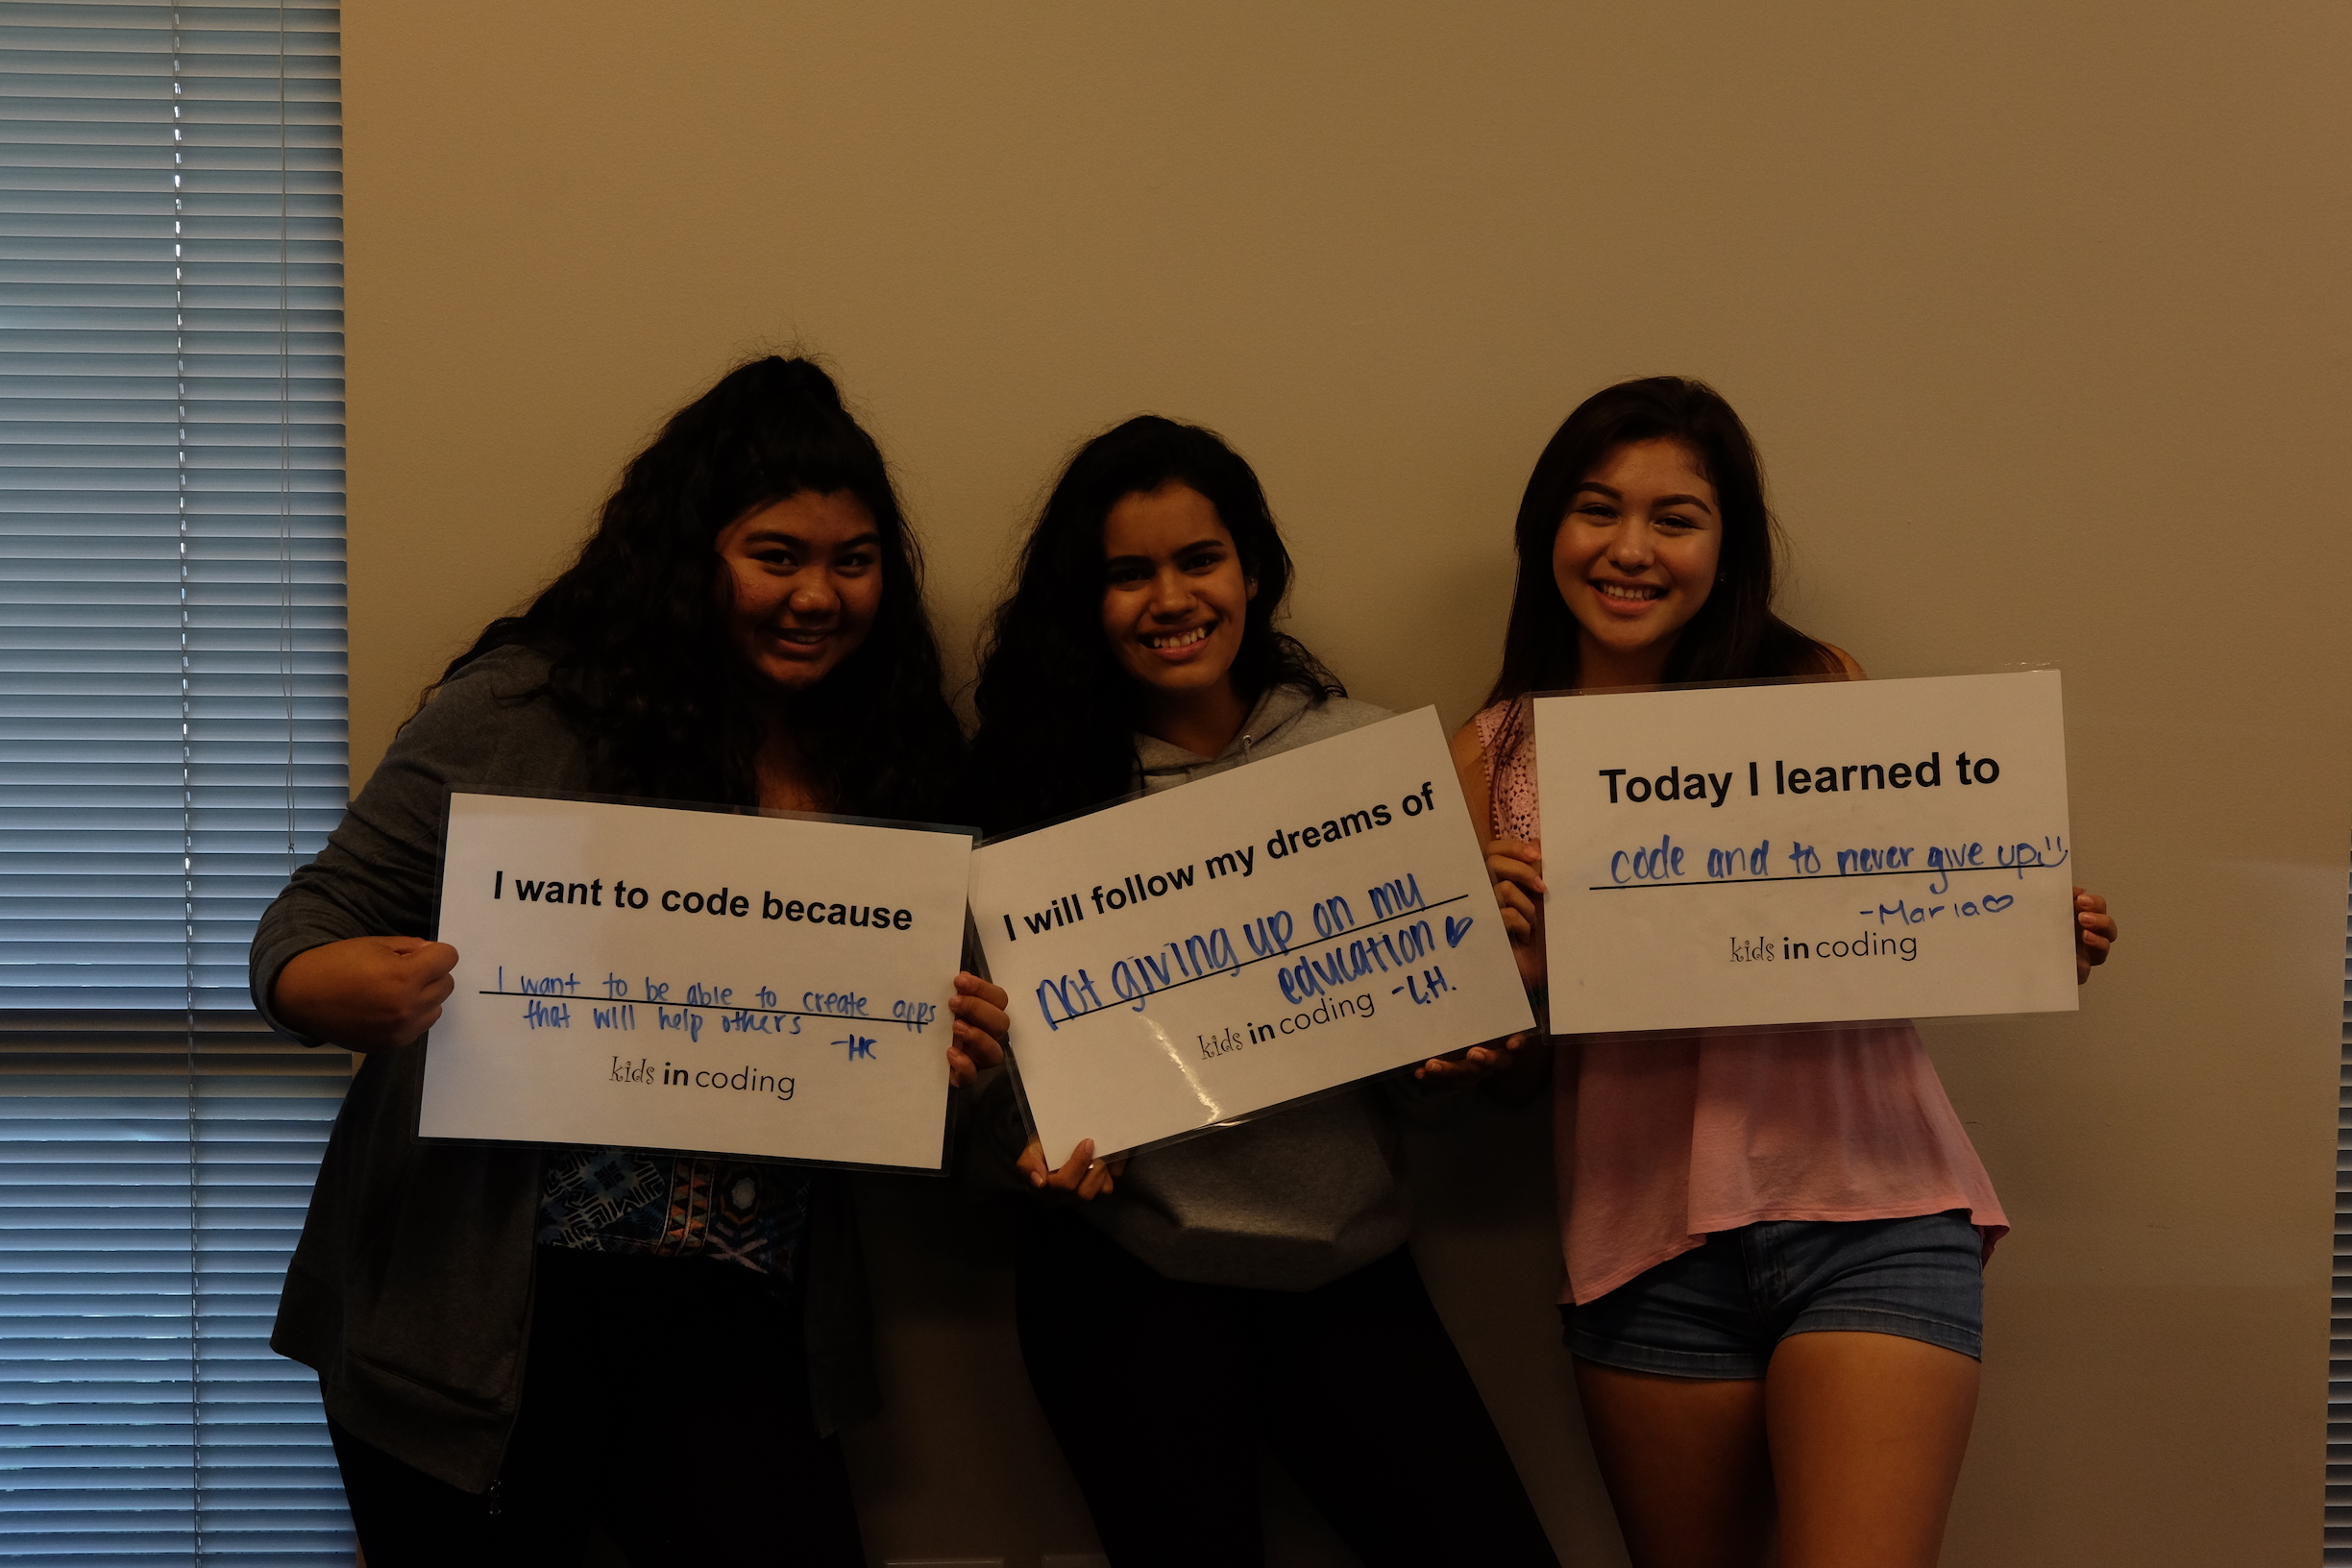 I want to code because
I want to be able to create apps
that will help others
-HC
kids in coding
I will follow my dreams of
not giving up on my
education ♥
-L.H.
kids in coding
Today I learned to
code and to never give up. :)
-Maria♡
kids in coding